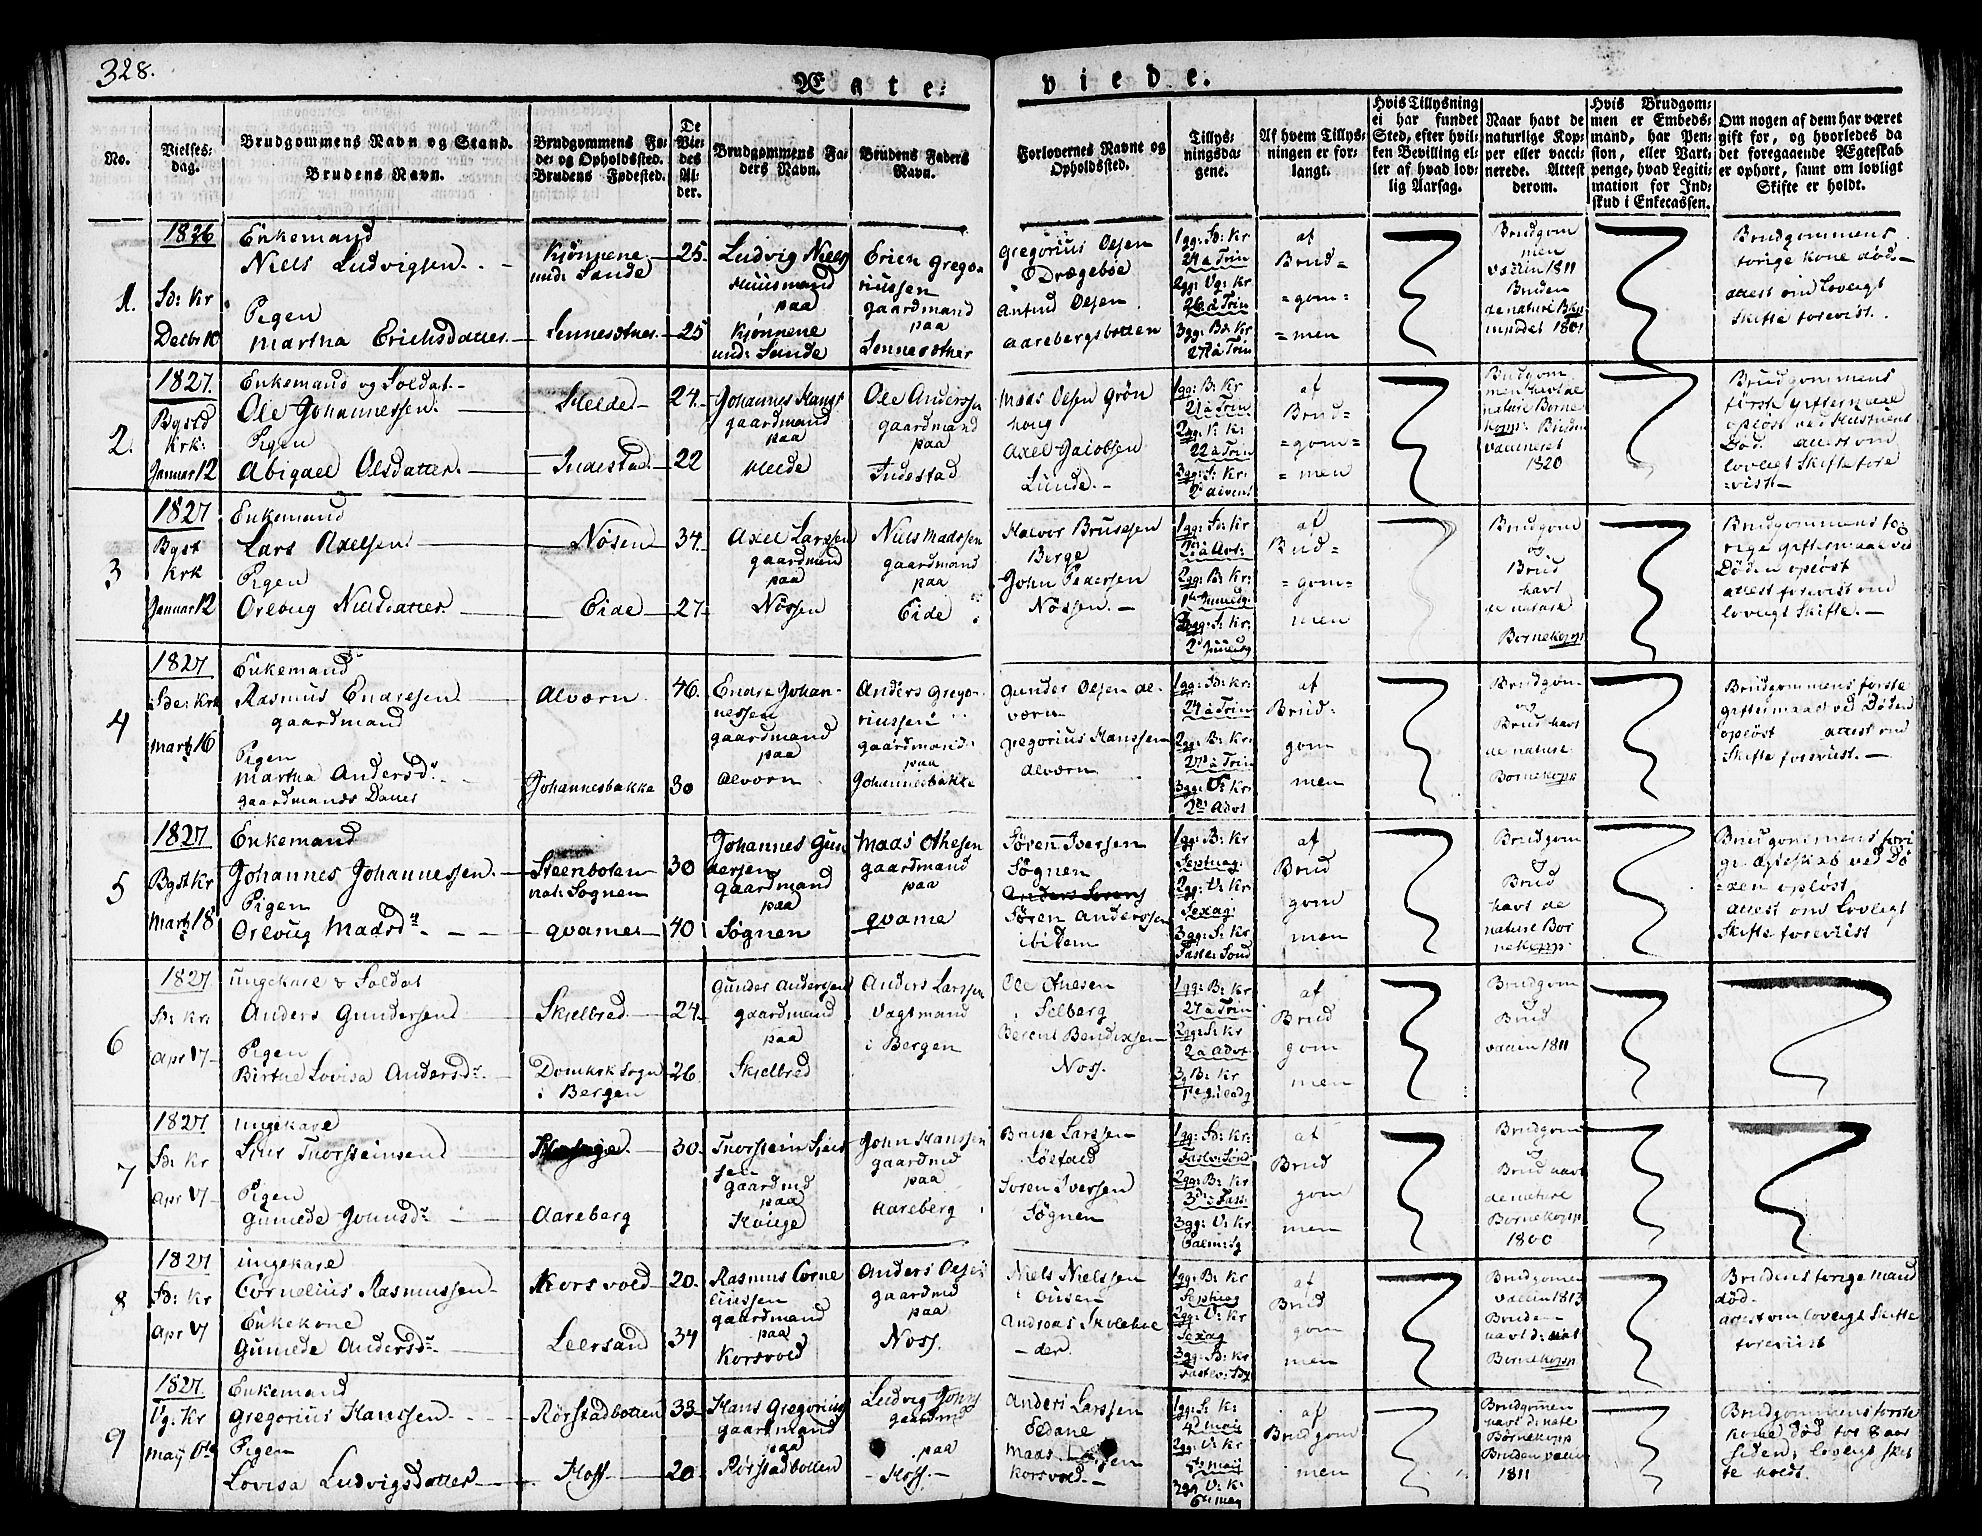 328.
Ægte-
viede.
No.
Vielses-
dag.
Brudgommens Navn og Stand.
Brudens Navn.
Brudgommens Fø-
de- og Opholdssted.
Brudens Fødested.
De
Vie-
des
Al-
der.
Brudgommens Fa-
ders Navn.
Brudens Faders
Navn.
Forlovernes Navne og
Opholdssted.
Tillys-
ningsda-
gene.
Af hvem Tillys-
ningen er for-
langt.
Hvis Tillysning
ei har fundet
Sted, efter hvil-
ken Bevilling el-
ler af hvad lov-
lig Aarsag.
Naar havt de
naturlige Kop-
per eller vacci-
nerede. Attest
derom.
Hvis Brudgom-
men er Embeds-
mand, har Pen-
sion, eller Vart-
penge, hvad Legiti-
mation for Ind-
skud i Enkecassen.
Om nogen af dem har været
gift før, og hvorledes da
det foregaaende Ægteskab
er ophørt, samt om lovligt
Skifte er holdt.
1.
1826
Sd: Kr
Decbr 10
Enkemand
Niels Ludvigsen
Pigen
Martha Erichsdatter
Kjønnene
25
25
Ludvig Niels
Huusmand
paa
Kjønnene
Erich Grego-
riussen
gaardmand
paa
Gregorius Olsen
Drægebøe
Antund Olsen
Aarebergsbotten
1gg: Sd: Kr
24 à Trin
2gg: Vg: Kr
26 à Trin
27 à Trin
af
Brud=
=gom=
=men
Brudgom
men
vaccin 1811
Bruden
Brudgommens
forige kone død
attest om lovligt
skifte forevist.
2.
1827.
Bygstd
Krk:
Januar 12
Enkemand og Soldat
Ole Johannessen
Pigen
Abigael Olsdatter
Helde
Indestad
24
22
gaardmand
paa
Helde
Ole Anderssen
gaardmand
paa
Indestad
Mads Olsen Grøn
houg
Axel Jacobsen
Lunde.
1gg: B: Kr
21 à Trin
2gg: V: Kr
22 à Trin
3gg: S: Kr
af
Brud=
=gom=
=men
vaccineret
1820
Brudgommens
første giftemaal
opløst ved Hustruens
Død. attest om
lovligt Skifte fore
=vist
3
1827.
Bygst
Krk
Januar 12
Enkemand
Lars Axelsen
Pigen
Orloug Nielsdatter
Nøsen
Eide
34
27
Axel Larssen
gaardmand
paa
Nøssen
Niels Madssen
gaardmand
paa
Eide
Halvor Brusesen
Berge
John Pedersen
Nøssen.
1gg: Sd: Kr
2gg: B: Kr:
3gg: S: Kr:
af
Brud=
=gom=
men
Brudgom
og
Brud
havt
de naturl
Bornekopp
Brudgommens fo
rige giftemaal ved
Døden opløst
attest forevist om
lovligt Skifte.
4
1827
Sde: Krk
Marts 16
Enkemand
Rasmus Endresen
gaardmand
Pigen
Martha Andersdr
gaardmands Datter
Alværn
Johannesbakke
46
30
Endre Johan-
nessen
gaardmand
paa
Alvørn
Anders Grego-
riussen
gaardmand
paa
Johannesbakke
Gunder Olsen al-
værn
Gregorius Hanssen
Alværn
1gg: Sd: Kr:
24 à Trin
2gg: B: Kr:
27d à Trin
3gg: V: Kr:
2d Advt
af
Brud-
gom
men
Brudgom
og
Brud havt
de naturl
Bornekopp
Brudgommens første
giftermaal ved Døden
opløst attest om
Skifte forevist.
5
1827
Bygst Kr
Marts 18
Enkemand
Johannes Johannessen
Pigen
Orloug Madsdr
Steenbolan
nat: Sognen
Qvamer
30
40
Johannes Gun
dersen
gaardmand
paa
Søgnen
Mads Othesen
gaardmand
paa
Qvame
Søren Iversen
Søgnen
Søren Anderssen
ibidem
1gg: B: Kr
Septuag:
2gg: V: Kr
Sexag:
3gg: S: Kr
Faste: Sønd
af
Brud
gom
men
Brudgom
og
Brud
havt de
naturl Bor
nekopp
Brudgommens fori
ge Egteskab ved Dø
=den opløst
attest om Lovligt
Skifte forevist
6
1827
Sd: Kr:
Apr 17
Ungekarl & Soldat
Anders Gundersen
Pigen
Birthe Lovisa Andersdr
Skielbred
Domkrk Sogn
i Bergen
24
26
Gunder Anderssen
gaardmand
paa
Skielbred
Anders Larssen
Vagtmand
i Bergen
Ole Thesen
Selberg
Berent Bendixsen
Noss.
1gg: B: Kr
27 à Trin
2gg: S: Kr
2 à Advt
3g B: Kr
af
Brud
gom
men
Brudgom
og
Brud
vaccin 1811
7
1827
Sd: Kr
Apr 17
Ungekarl
Siur Thorsteinsen
Pigen
Gunilde Johnsdr
Aareberg
30
Thorstein Siur
sen
gaardmd
paa
Hauge
John Hanssen
gaardmd
paa
Aareberg
Bruse Larssen
Løstald
Søren Iversen
Søgnen
1gg: Sd: Kr:
2gg: B: Kr
3gg: V: Kr
Palm: Sg
af
Brud
gom
men
Brudgom
og
Brud havt
de naturl
Bornekopp
1800
8
1827
Sd: Kr
Apr 17
Ungekarl
Cornelius Rasmussen
Enkekone
Gunilde Andersdr
Korsvold
Leersand
20
34
Rasmus Corne
liussen
gaardmand
paa
Korsvold
Anders Olsen
gaardmd
paa
Noss.
Niels Nielssen
Andreas Skolehol
der.
1gg: B: Kr
Septuag
2gg: V: Kr
Sexag
3gg: Sd: Kr
af
Brud
gom
men
Brudgomen
vaccin 1813
Bruden
havt d: nat
Bornekopp
Brudens forige Mand
død.
attest om lovligt Skifte
forevist
9
1827
Vg: Kr
Maij 6te
Enkemand
Gregorius Hanssen
Pigen
Lovisa Ludvigsdatter
Rørstadbotten
Hoff
33
20
Hans Gregorius
gaardmand
paa
Rørstadbotten
Ludvig Johns
gaardmd
paa
Hoff
Anders Larssen
Sedane
Mads
Korsvold
1gg: S: K:
4d maij
2gg: V: Kr
3gg V: K:
6te maij
af
Brudgom
men
Brudgomen
havt d: nate
Børnekopp
Bruden vaccin
1811
Brudgommens første
kone død for 8 aar
siden; lovligt skif
te holdt.